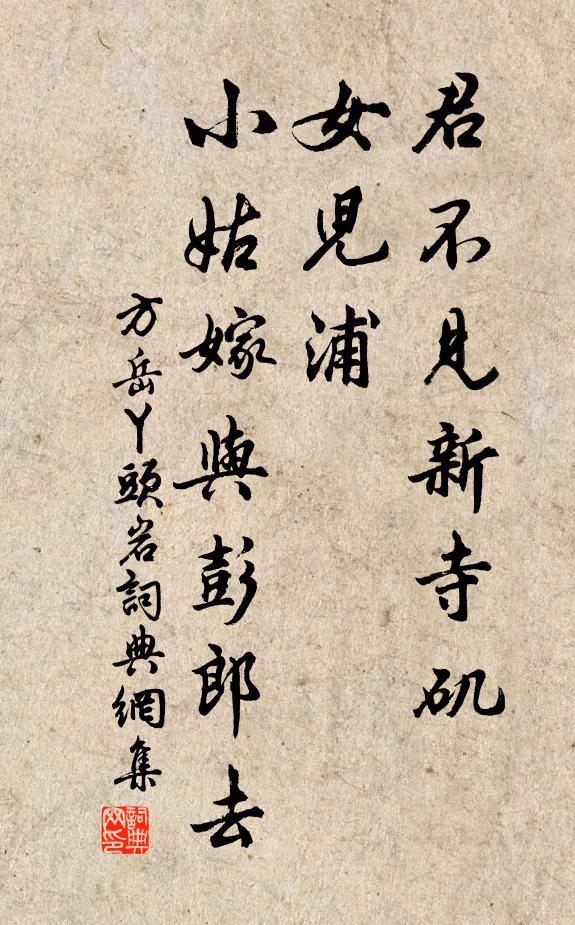 君不見新寺矶
女児浦
小姑嫁與彭郎去
方岳丫頭岩詞典網集
詞典网印